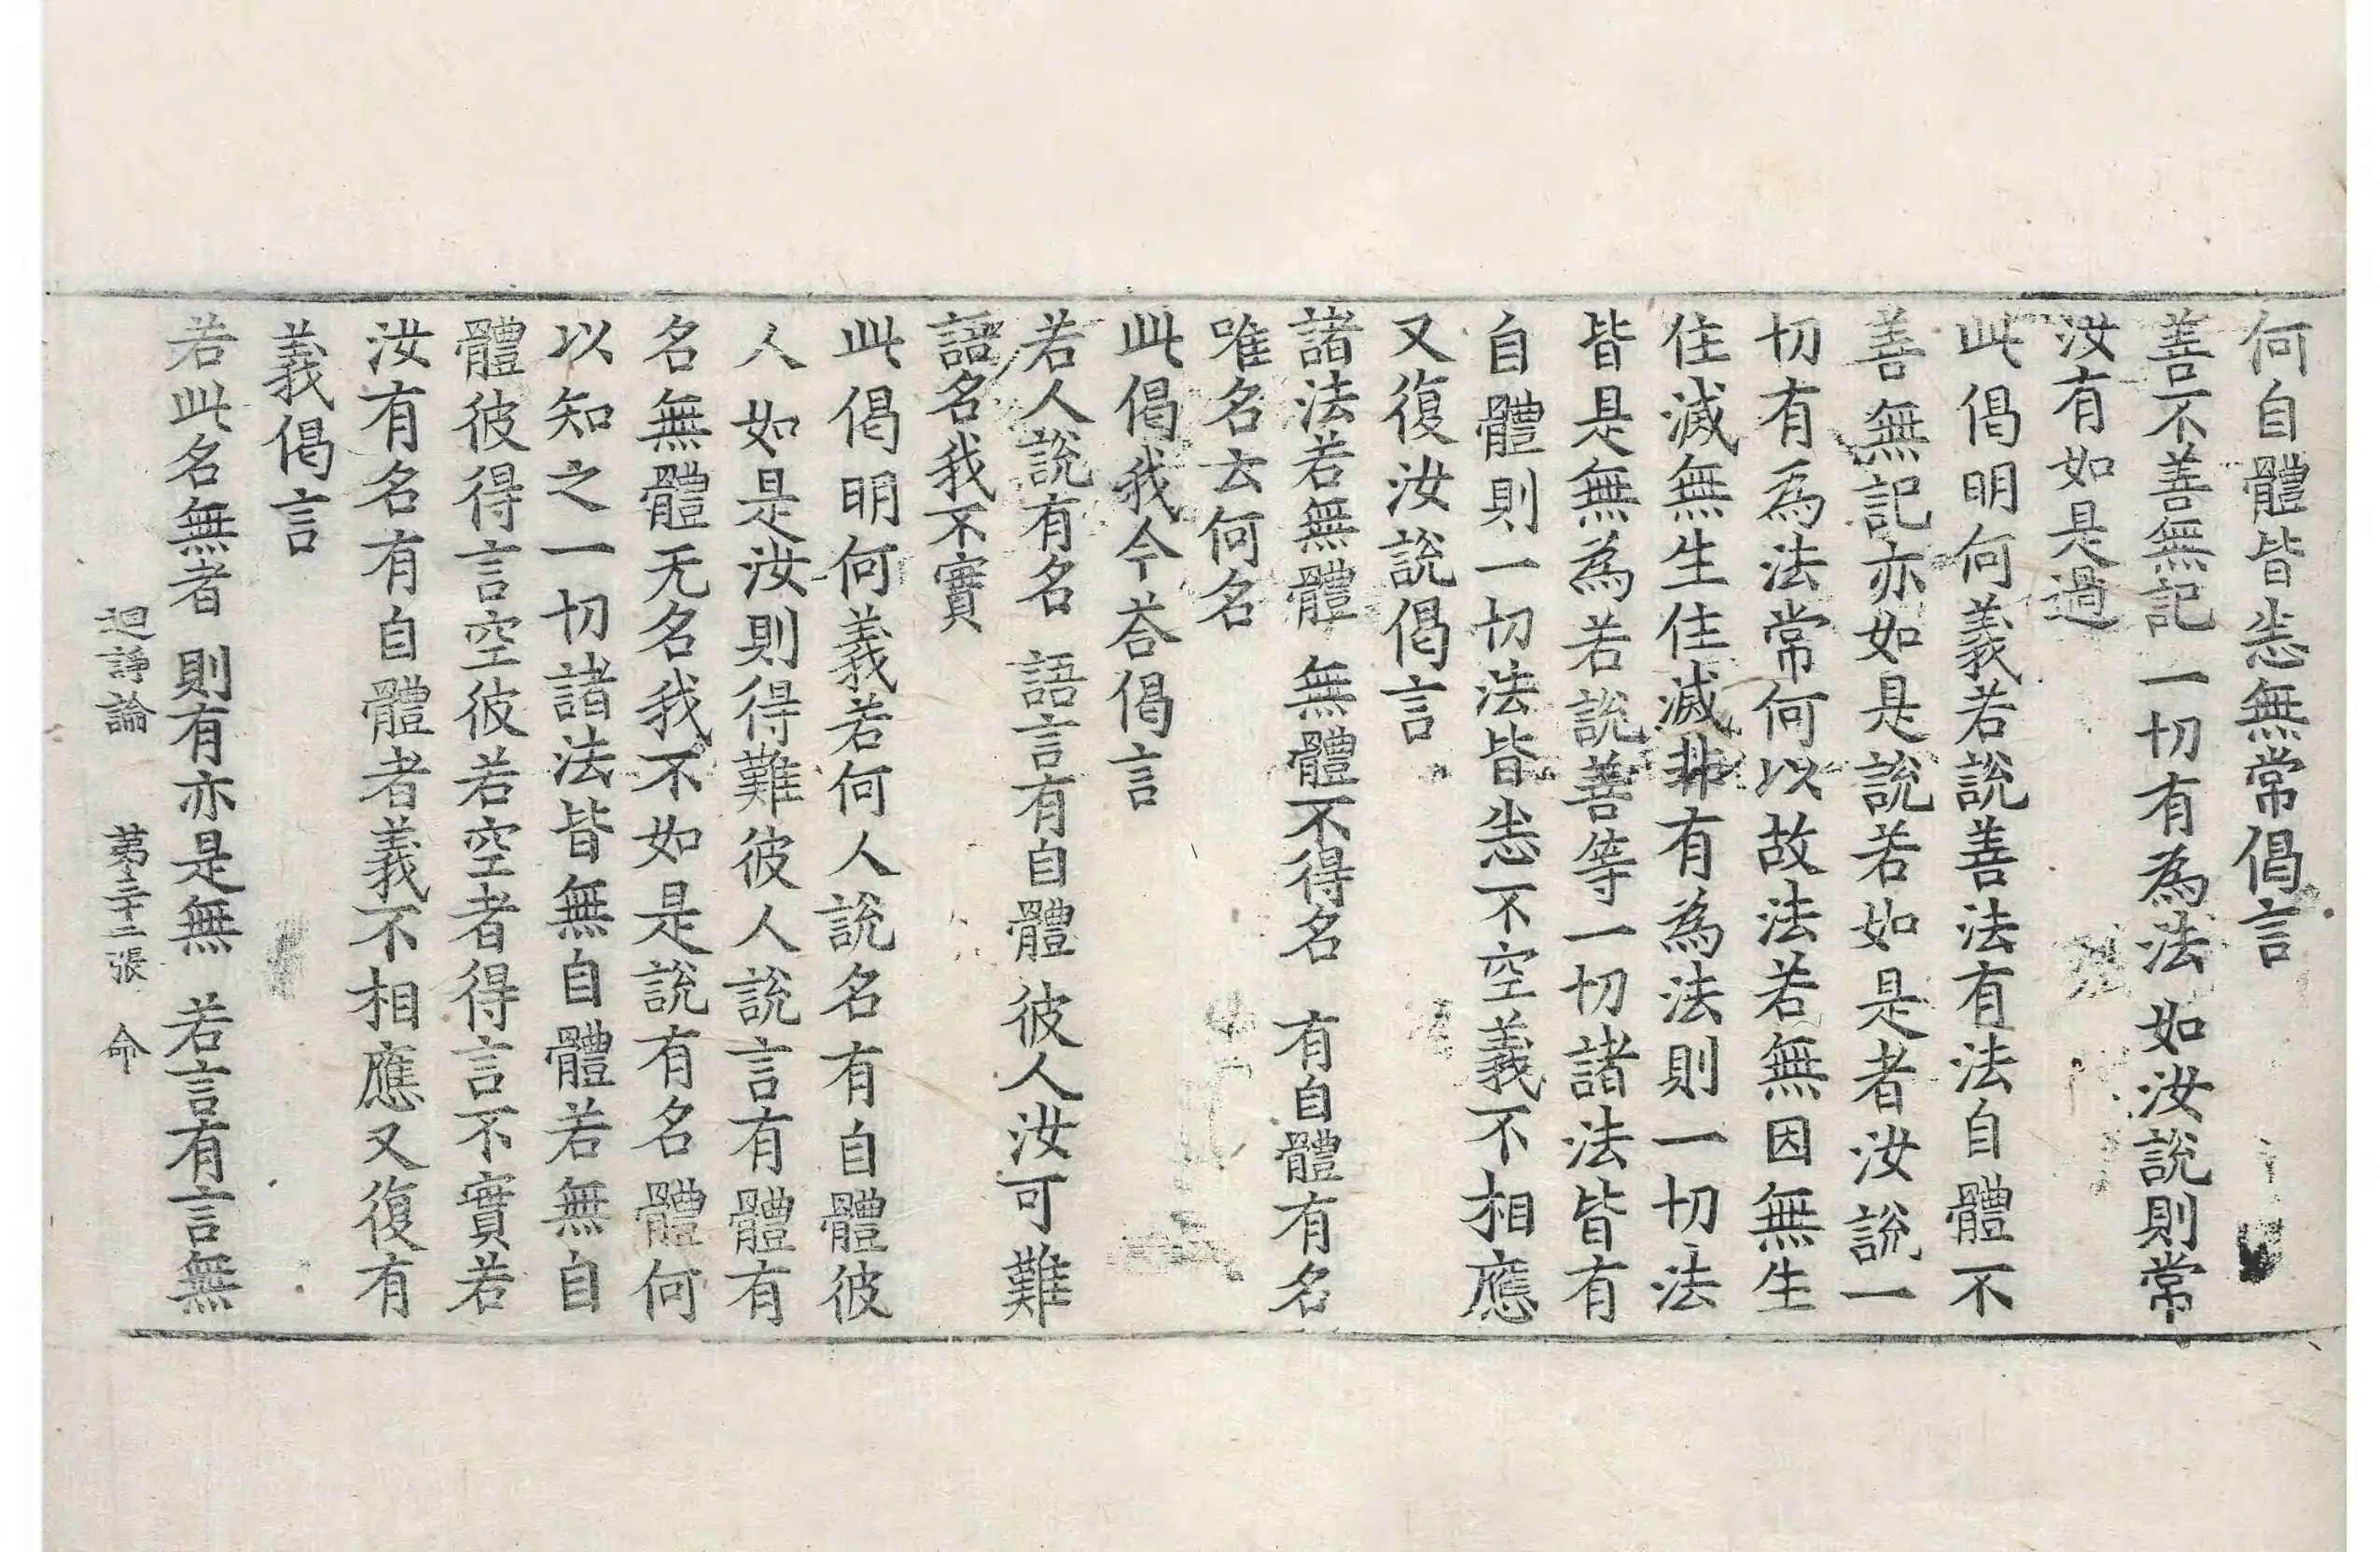 何自體皆悉無常偈言
善不善無記　一切有為法　如汝說則常
汝有如是過
此偈明何義若說善法有法自體不
善無記亦如是說若如是者汝說一
切有為法常何以故法若無因無生
住滅無生住滅非有為法則一切法
皆是無為若說善等一切諸法皆有
自體則一切法皆悉不空義不相應
又復汝說偈言
諸法若無體　無體不得名　有自體有名
唯名云何名
此偈我今荅偈言
若人說有名　語言有自體　彼人汝可難
語名我不實
此偈明何義若何人說名有自體彼
人如是汝則得難彼人說言有體有
名無體无名我不如是說有名體何
以知之一切諸法皆無自體若無自
體彼得言空彼若空者得言不實若
汝有名有自體者義不相應又復有
義偈言
若此名無者　則有亦是無　若言有言無
迴諍論　第三十二張　命